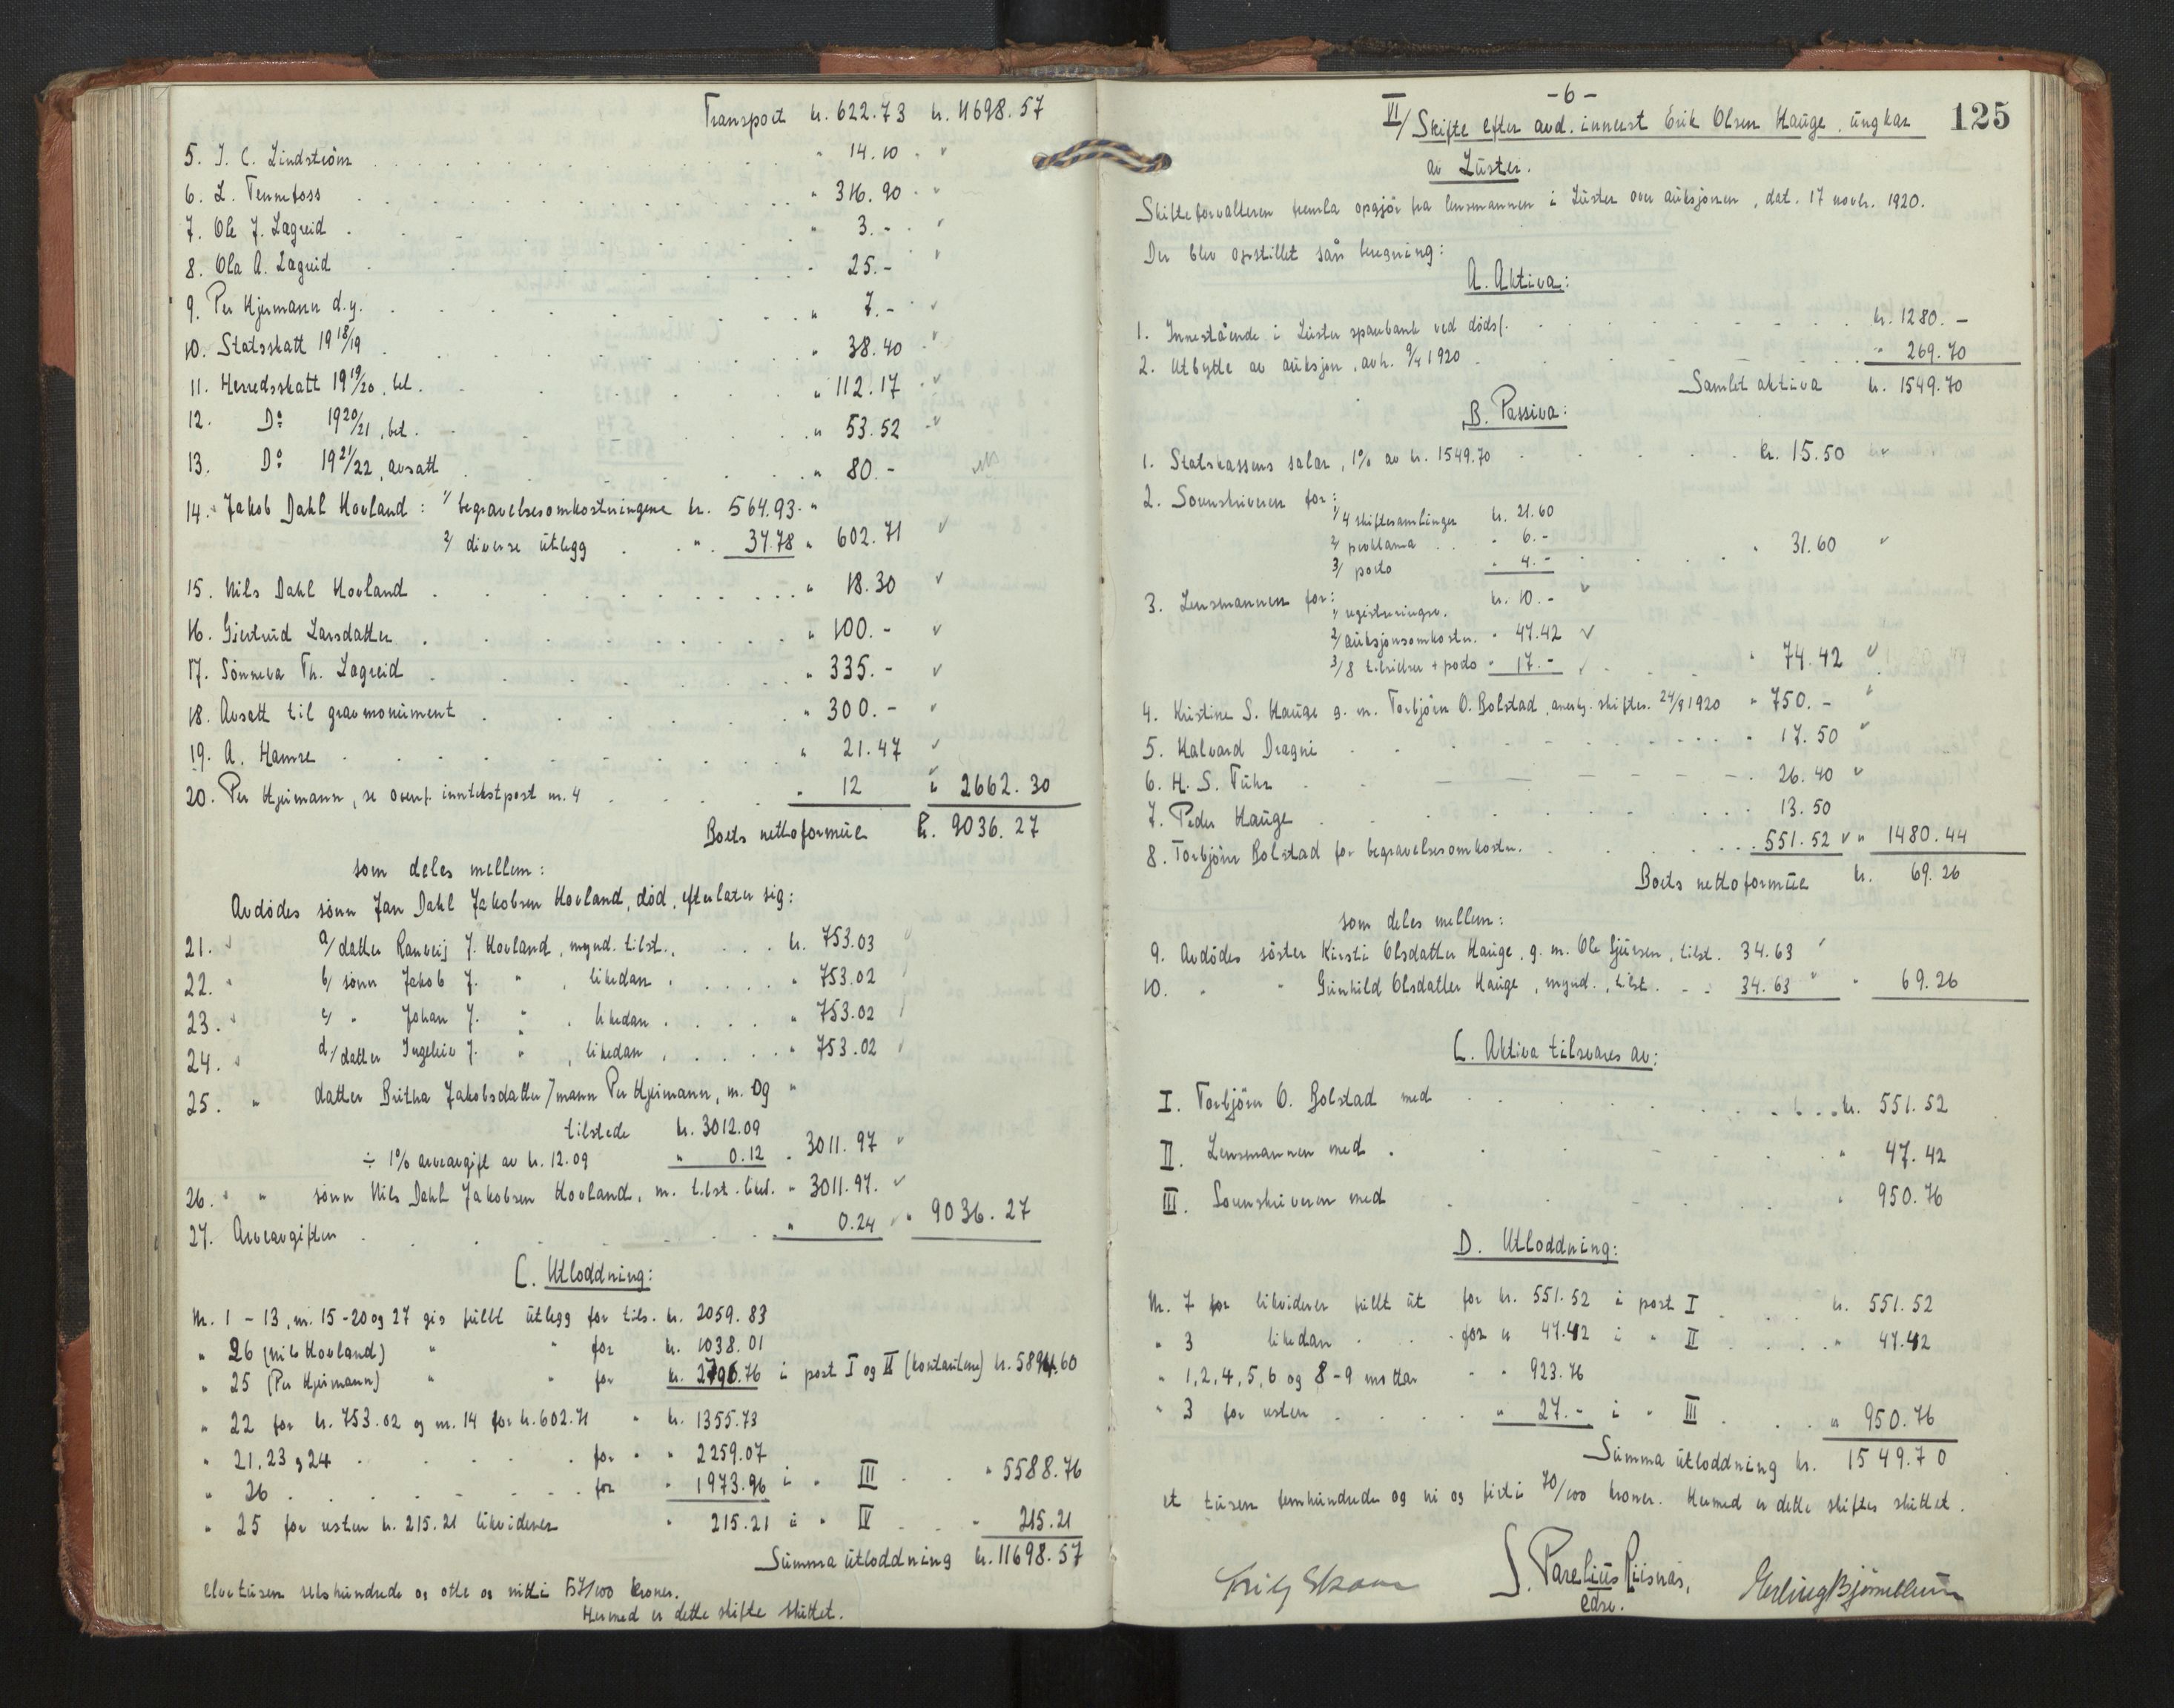 Transport kr. 622.73 kr. 11698.57
5. J. C. Lindström " 14.10 "
6. L. Tennefoss " 316.90 "
7. Ole J. Lagreid " 3.- "
8. Ola A. Lagreid " 25.- "
9. Per Hjermann d.y. " 7.- "
10. Statsskatt 19 18/19 " 38.40
11. Herredsskatt 19 19/20, bet. " 112.17
12. Do 19 20/21, bet. " 53.52
13. Do 19 21/22, avsatt " 80.-
14. Jakob Dahl Hovland: 1/ begravelsesomkostningene kr. 564.93 "
2/ diverse utlegg " 37.78 " 602.71
15. Nils Dahl Hovland " 18.30
16. Gjertrud Larsdatter " 100.-
17. Sönneva Th. Lagreid " 335.-
18. Avsatt til gravmonument " 300.-
19. A. Hamre " 21.47
20. Per Hjermann, se ovenf. inntektspost nr. 4 " 12 " 2662.30
Boets nettoformue kr. 9036.27
som deles mellem:
Avdödes sönn Jan Dahl Jakobsen Hovland, död, efterlater sig:
21. " a/ datter Ranveig J. Hovland, mynd. tilst. kr. 753.03
22. " b/ sönn Jakob J. " , likedan " 753.02
23. " c/ " Johan J. " , likedan " 753.02
24. " d/ datter Ingeleiv J. " , likedan " 753.02
25. " datter Britha Jakobsdatter / mann Per Hjermann, m. og "
tilstede kr. 3012.09
÷ 1% arveavgift av kr. 12.09 " 0.12 " 3011.97
26. " " sönn Nils Dahl Jakobsen Hovland, m. tilst. liked. " 3011.97
27. Arveavgiften " 0.24 " 9036.27
C. Utloddning:
Nr. 1 - 13, nr. 15-20 og 27 gis fullt utlegg for tils. kr. 2059.83
" 26 (Nils Hovland) " " for kr. 1038.01
" 25 (Per Hjermann) " " for kr. 2796.76 i post I og II (kontantene) kr. 5894.60
" 22 for kr. 753.02 og nr. 14 for kr. 602.71 " kr. 1355.73
" 21, 23 og 24 for " " 2259.07
" 26 for " 1973.96 i " III " 5588.76
" 25 for resten kr. 215.21 likviderer " 215.21 i " IV " 215.21
Summa utloddning kr. 11698.57
elvetusen sekshundrede og otte og nitti 57/100 kroner.
Hermed er dette skifte sluttet.
-6-
125
VI/ Skifte efter avd. innerst Erik Olsen Hauge, ungkar
av Luster.
Skifteforvalteren fremla opgjör fra lensmannen i Luster over auksjonen, dat. 17 novbr. 1920.
Der blev opstillet sån beregning:
A. Aktiva:
1. Innestående i Luster sparebank ved dödsf. kr. 1280.-
2. Utbytte av auksjon, avh. 9/4 1920 " 269.70
Samlet aktiva kr. 1549.70
B. Passiva:
1. Statskassens salær, 1% av kr. 1549.70 kr. 15.50
2. Sorenskriveren for:
1/ 4 skiftesamlinger kr. 21.60
2/ proklama " 6.-
3/ porto " 4.- " 31.60
3. Lensmannen for:
1/ registreringsv. kr. 10.-
2/ auksjonsomkostn. " 47.42
3/ 8 tilsielser + porto " 17.- " 74.42
4. Kristine S. Hauge g. m. Torbjörn O. Bolstad, anerkj. skiftes. 24/9 1920 " 750.-
5. Halvard Dragni " 17.50
6. H. S. Fuhr " 26.40
7. Peder Hauge 13.50
8. Torbjörn Bolstad for begravelsesomkostn. 551.52 " 1480.44
Boets nettoformue kr. 69.26
som deles mellem:
9. Avdödes söster Kirsti Olsdatter Hauge, g. m. Ole Sjursen, tilst. 34.63
10. " " Gunhild Olsdatter Hauge, mynd., tilst. 34.63 " 69.26
C. Aktiva tilsvares av:
I. Torbjörn O. Bolstad med kr. 551.52
II. Lensmannen med " 47.42
III. Sorenskriveren med " 950.76
D. Utloddning:
Nr. 7 for likviderer fullt ut for kr. 551.52 i post I kr. 551.52
" 3 likedan for " 47.42 i " II " 47.42
" 1, 2, 4, 5, 6 og 8-9 mottar " " 923.76
" 3 for resten " 27.- i " III " 950.76
Summa utloddning kr. 1549.70
et tusen femhundrede og ni og firti 70/100 kroner. Hermed er dette skiftes sluttet.
S. Parelius Riisnæs,
edsv.